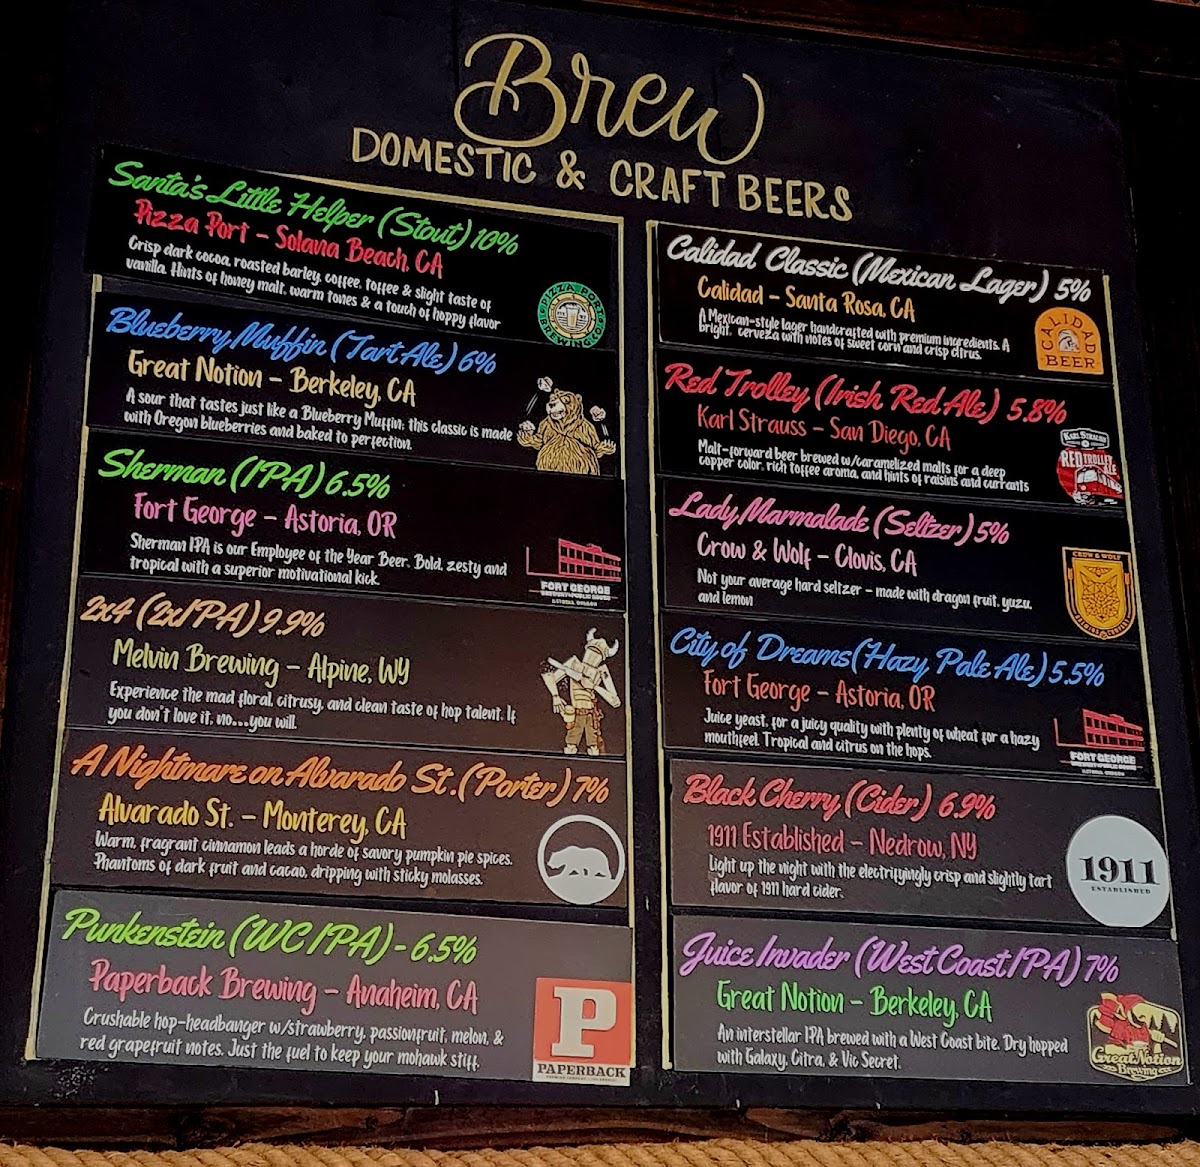 Brew
DOMESTIC & CRAFT BEERS
Santa's Little Helper (Stout) 10%
Pizza Port – Solana Beach, CA
Crisp dark cocoa, roasted barley, coffee, toffee & slight taste of
vanilla. Hints of honey malt, warm tones & a touch of hoppy flavor
PIZZA PORT
BREWING CO
Blueberry Muffin (Tart Ale) 6%
Great Notion – Berkeley, CA
A sour that tastes just like a Blueberry Muffin; this classic is made
with Oregon blueberries and baked to perfection.
Sherman (IPA) 6.5%
Fort George – Astoria, OR
Sherman IPA is our Employee of the Year Beer. Bold, zesty and
tropical with a superior motivational kick.
FORT GEORGE
BREWERY + PUBLIC HOUSE
ASTORIA, OREGON
2x4 (2xIPA) 9.9%
Melvin Brewing – Alpine, WY
Experience the mad floral, citrusy, and clean taste of hop talent. If
you don't love it, no...you will.
A Nightmare on Alvarado St. (Porter) 7%
Alvarado St. – Monterey, CA
Warm, fragrant cinnamon leads a horde of savory pumpkin pie spices.
Phantoms of dark fruit and cacao, dripping with sticky molasses.
Punkenstein (WC IPA) - 6.5%
Paperback Brewing – Anaheim, CA
Crushable hop-headbanger w/strawberry, passionfruit, melon, &
red grapefruit notes. Just the fuel to keep your mohawk stiff.
P
PAPERBACK
Calidad Classic (Mexican Lager) 5%
Calidad – Santa Rosa, CA
A Mexican-style lager handcrafted with premium ingredients. A
bright, cerveza with notes of sweet corn and crisp citrus.
CALIDAD
BEER
Red Trolley (Irish Red Ale) 5.8%
Karl Strauss – San Diego, CA
Malt-forward beer brewed w/caramelized malts for a deep
copper color, rich toffee aroma, and hints of raisins and currants
KARL STRAUSS
RED TROLLEY
ALE
Lady Marmalade (Seltzer) 5%
Crow & Wolf – Clovis, CA
Not your average hard seltzer – made with dragon fruit, yuzu,
and lemon
CROW & WOLF
City of Dreams (Hazy Pale Ale) 5.5%
Fort George – Astoria, OR
Juice yeast, for a juicy quality with plenty of wheat for a hazy
mouthfeel. Tropical and citrus on the hops.
FORT GEORGE
BREWERY + PUBLIC HOUSE
ASTORIA, OREGON
Black Cherry (Cider) 6.9%
1911 Established – Nedrow, NY
Light up the night with the electrifyingly crisp and slightly tart
flavor of 1911 hard cider.
1911
ESTABLISHED
Juice Invader (West Coast IPA) 7%
Great Notion – Berkeley, CA
An interstellar IPA brewed with a West Coast bite. Dry hopped
with Galaxy, Citra, & Vic Secret.
Great Notion
Brewing